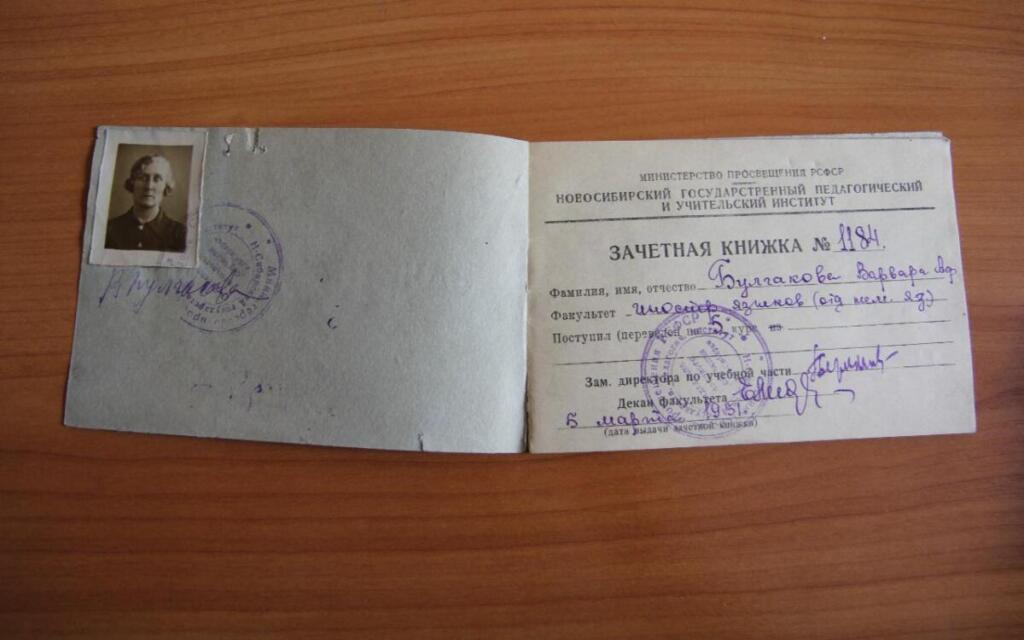 МИНИСТЕРСТВО ПРОСВЕЩЕНИЯ РСФСР
НОВОСИБИРСКИЙ ГОСУДАРСТВЕННЫЙ ПЕДАГОГИЧЕСКИЙ
И УЧИТЕЛЬСКИЙ ИНСТИТУТ
ЗАЧЕТНАЯ КНИЖКА № 1184.
Фамилия, имя, отчество Булгакова Варвара Аф
Факультет иностр языков (отд нем. яз)
Поступил (переведен на 5 курс из
Зам. директора по учебной части
Декан факультета
5 марта 1951.
(дата выдачи зачетной книжки)